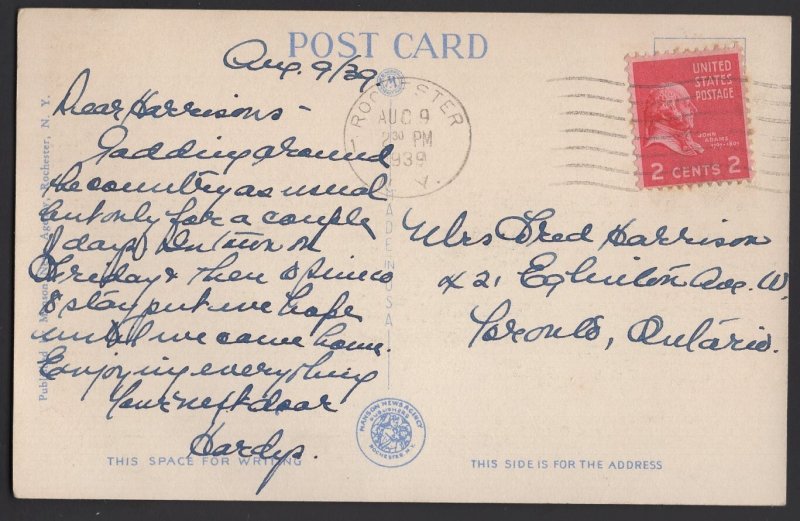 POST CARD
Aug. 9/39.
Dear Harrisons -
Gadding around
the country as usual
but only for a couple
of days. In town on
Friday & then to Simcoe
& stay put we hope
until we come home.
Enjoying everything
Your next door
Hardys.
THIS SPACE FOR WRITING
Rochester, N. Y.
MADE IN USA
ROCHESTER
AUG 9
230 PM
1939
UNITED
STATES
POSTAGE
JOHN
ADAMS
1797-1801
2 CENTS 2
Mrs Fred Harrison
421 Eglinton Ave. W.
Toronto, Ontario.
MANSON NEWS AGENCY
PUBLISHERS
ROCHESTER, N.Y.
THIS SIDE IS FOR THE ADDRESS